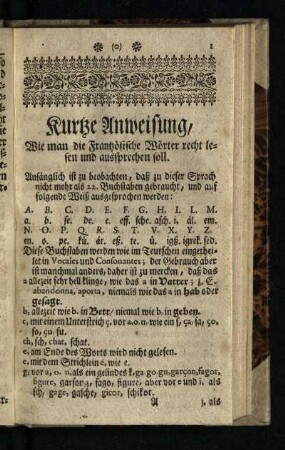 (o) 1
Kurtze Anweisung,
Wie man die Frantzösische Wörter recht le-
sen und aussprechen soll.
Anfänglich ist zu beobachten, daß zu dieser Sprach
nicht mehr als 22. Buchstaben gebraucht, und auf
folgende Weiß ausgesprochen werden:
A. B. C. D. E. F. G. H. I. L. M.
a. b. se. de. e. eff. sche. asch. i. äl. em.
N. O. P. Q. R. S. T. V. X. Y. Z.
en. o. pe. kü. är. eß. te. ü. igß. igrek. sed.
Diese Buchstaben werden wie im Teutschen eingethei-
let in Vocales und Consonantes; der Gebrauch aber
ist manchmal anders, daher ist zu mercken, daß das
a allezeit sehr hell klinge, wie das a in Vatter; z. E.
abandonna, aporta, niemals wie das a in hab oder
gesagt.
b, allezeit wie b. in Bett/ niemal wie b. in geben.
c, mit einem Unterstrich ç. vor a. o. u. wie ein ß, ça, sa, ço,
so, çu, su.
ch, sch, chat, schat.
e, am Ende des Worts wird nicht gelesen.
é, mit dem Strichlein é, wie e.
g, vor a, o. u, als ein gelindes k, ga, go, gu, garçon, fagot,
figure, garson, fago, figure, aber vor e und i. als
sch, gage, gasche, gicot, schikot.
A j, als